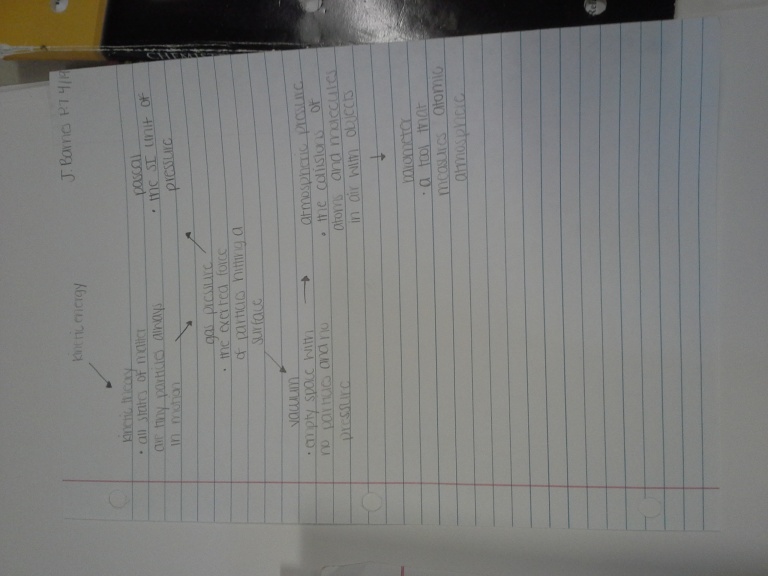 J Ramos P.7 4/19
kinetic energy
kinetic theory
• all states of matter
are tiny particles always
in motion
pascal
• the SI unit of
pressure
gas pressure
• the exerted force
of particles hitting a
surface
vacuum
• empty space with
no particles and no
pressure
atmospheric pressure
• the collisions of
atoms and molecules
in air with objects
barometer
• a tool that
measures atomic
atmosphere